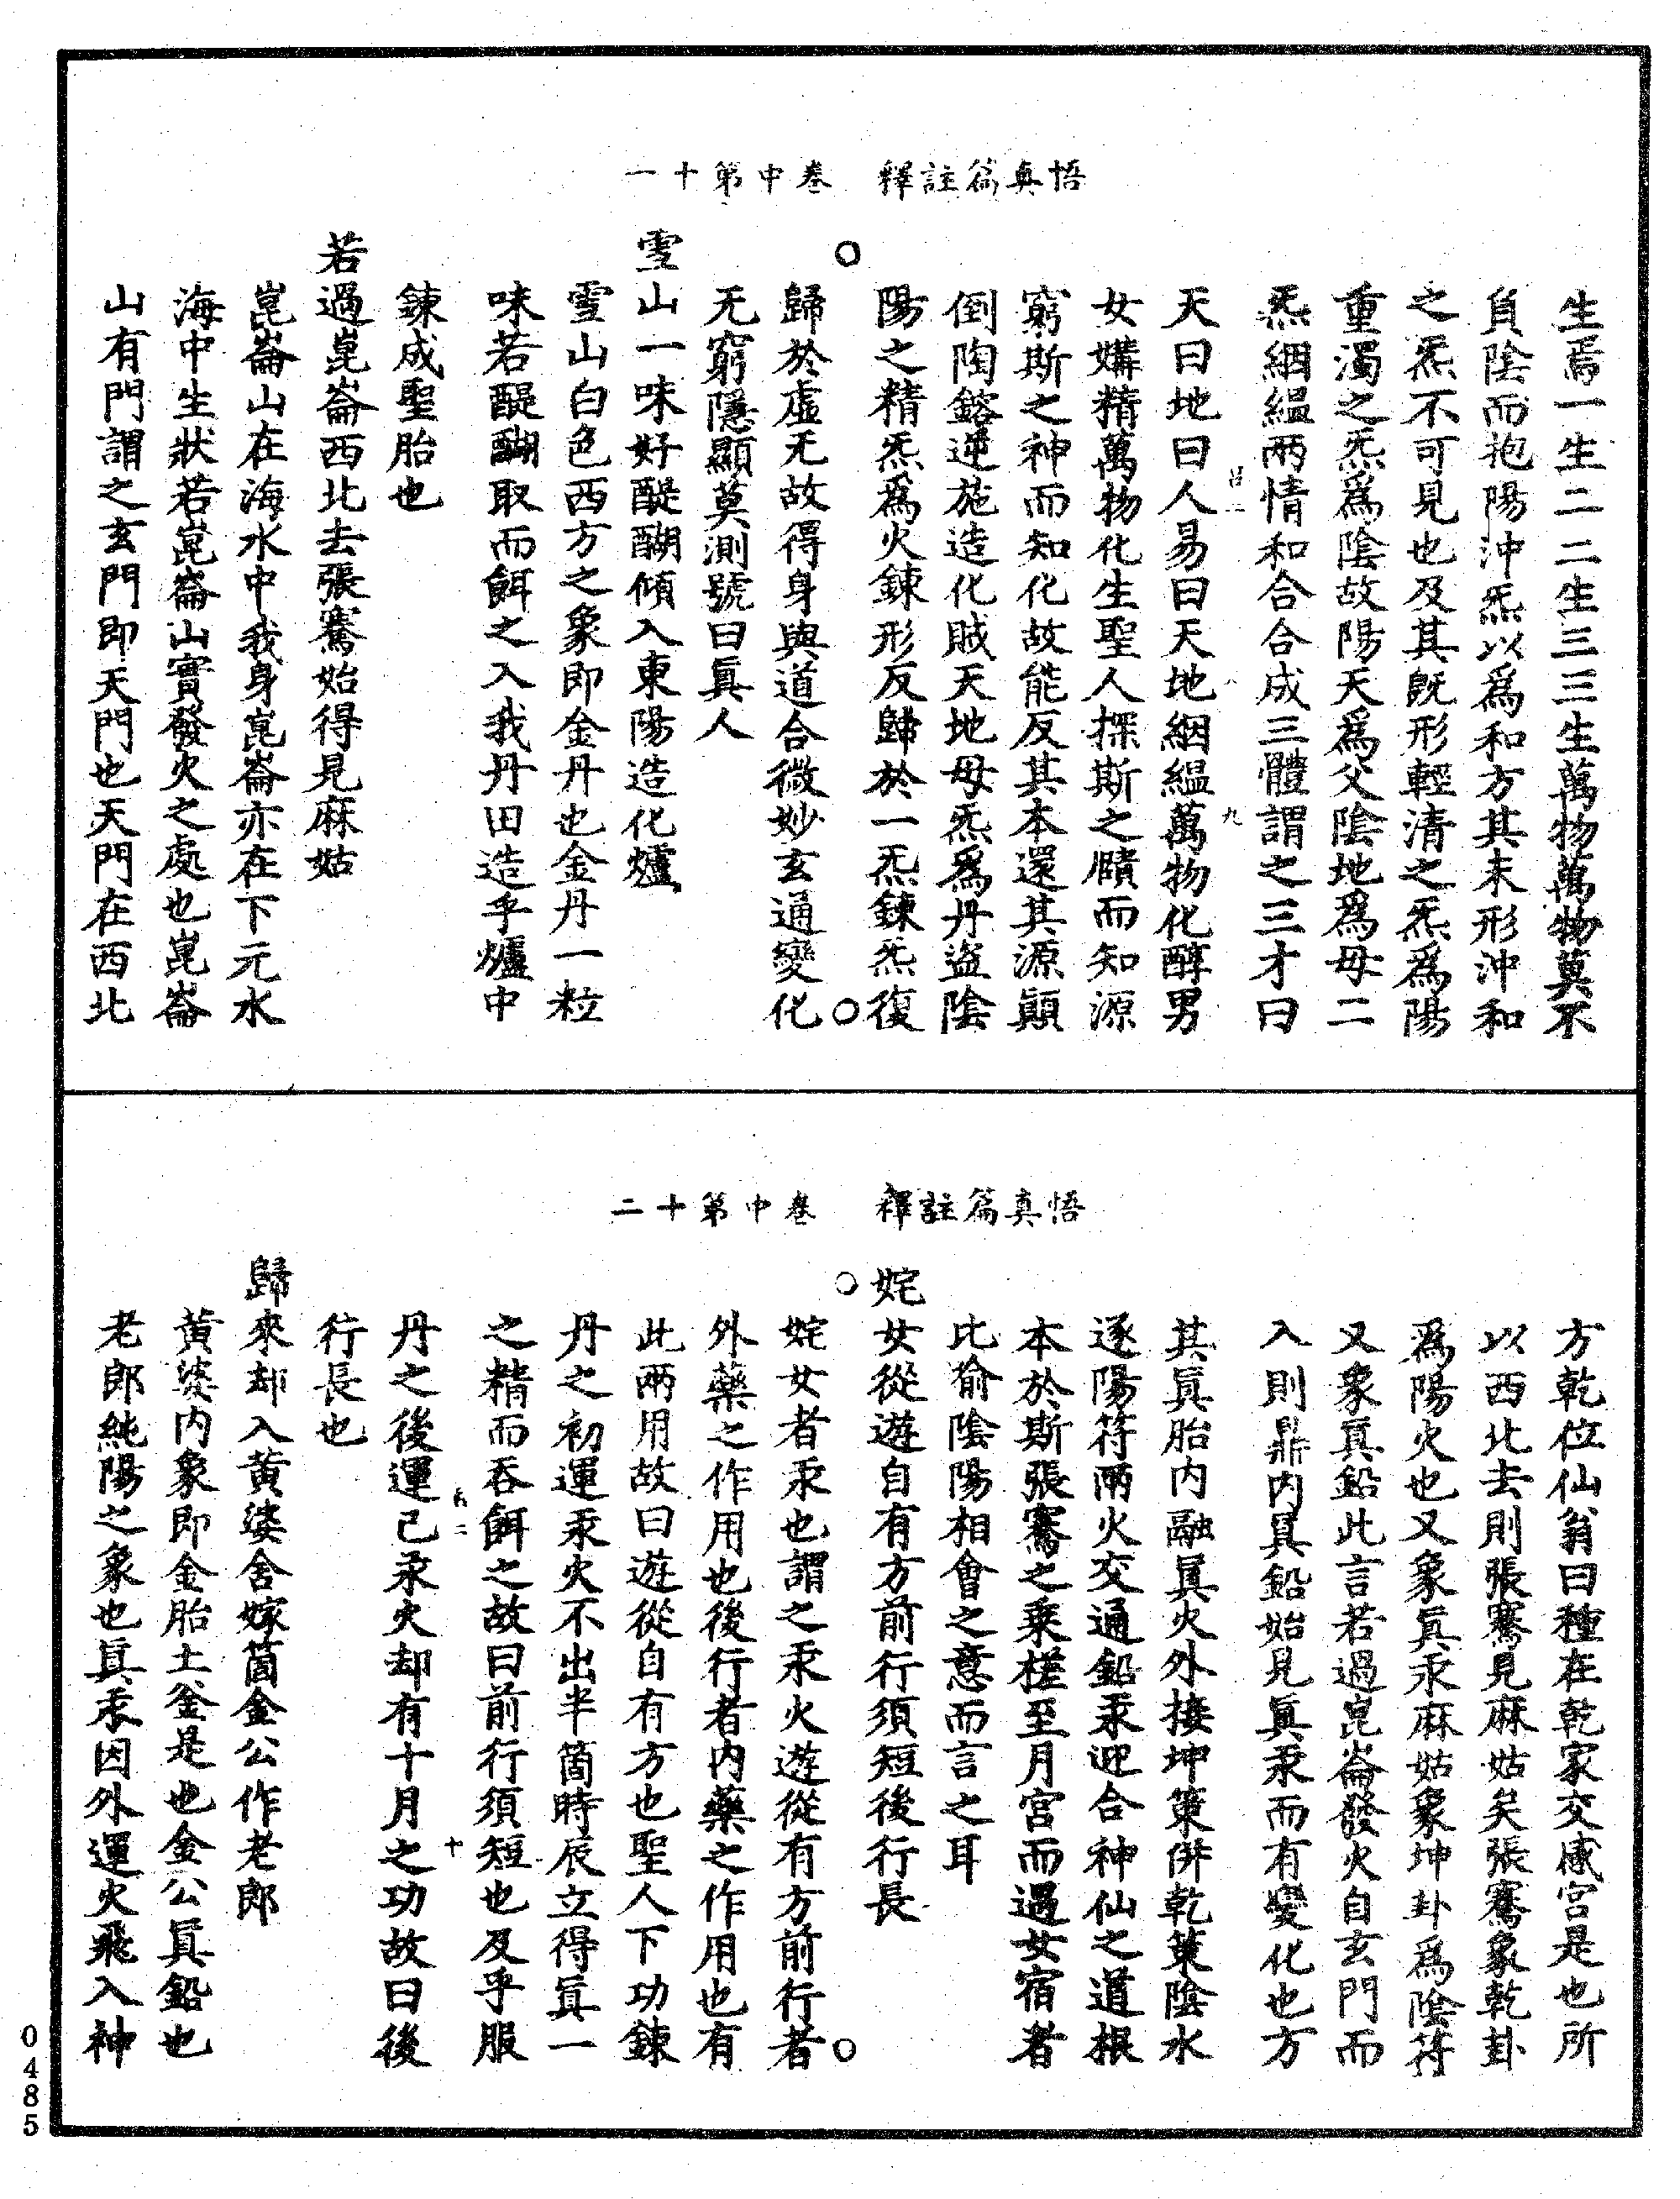 悟真篇註釋　卷中第十一
生焉一生二二生三三生萬物萬物莫不
負陰而抱陽沖炁以爲和方其未形沖和
之炁不可見也及其旣形輕清之炁爲陽
重濁之炁爲陰故陽天爲父陰地爲母二
炁絪縕兩情和合合成三體謂之三才曰
天曰地曰人易曰天地絪縕萬物化醇男
女媾精萬物化生聖人探斯之賾而知源
窮斯之神而知化故能反其本還其源顛
倒陶鎔逆施造化賊天地母炁爲丹盜陰
陽之精炁爲火鍊形反歸於一炁鍊炁復
歸於虛无故得身與道合微妙玄通變化
无窮隱顯莫測號曰眞人
雪山一味好醍醐傾入東陽造化爐
雪山白色西方之象即金丹也金丹一粒
味若醍醐取而餌之入我丹田造乎爐中
鍊成聖胎也
若過崑崙西北去張騫始得見麻姑
崑崙山在海水中我身崑崙亦在下元水
海中生狀若崑崙山實發火之處也崑崙
山有門謂之玄門即天門也天門在西北
悟真篇註釋　卷中第十二
方乾位仙翁曰種在乾家交感宮是也所
以西北去則張騫見麻姑矣張騫象乾卦
爲陽火也又象眞汞麻姑象坤卦爲陰符
又象眞鉛此言若過崑崙發火自玄門而
入則鼎內眞鉛始見眞汞而有變化也方
其眞胎內融眞火外接坤策倂乾策陰水
逐陽符兩火交通鉛汞迎合神仙之道根
本於斯張騫之乘槎至月宮而過女宿者
比喻陰陽相會之意而言之耳
姹女從遊自有方前行須短後行長
姹女者汞也謂之汞火遊從有方前行者
外藥之作用也後行者內藥之作用也有
此兩用故曰遊從自有方也聖人下功鍊
丹之初運汞火不出半箇時辰立得眞一
之精而吞餌之故曰前行須短也及乎服
丹之後運己汞火却有十月之功故曰後
行長也
歸來却入黃婆舍嫁箇金公作老郎
黃婆內象即金胎土釜是也金公眞鉛也
老郎純陽之象也眞汞因外運火飛入神
0485